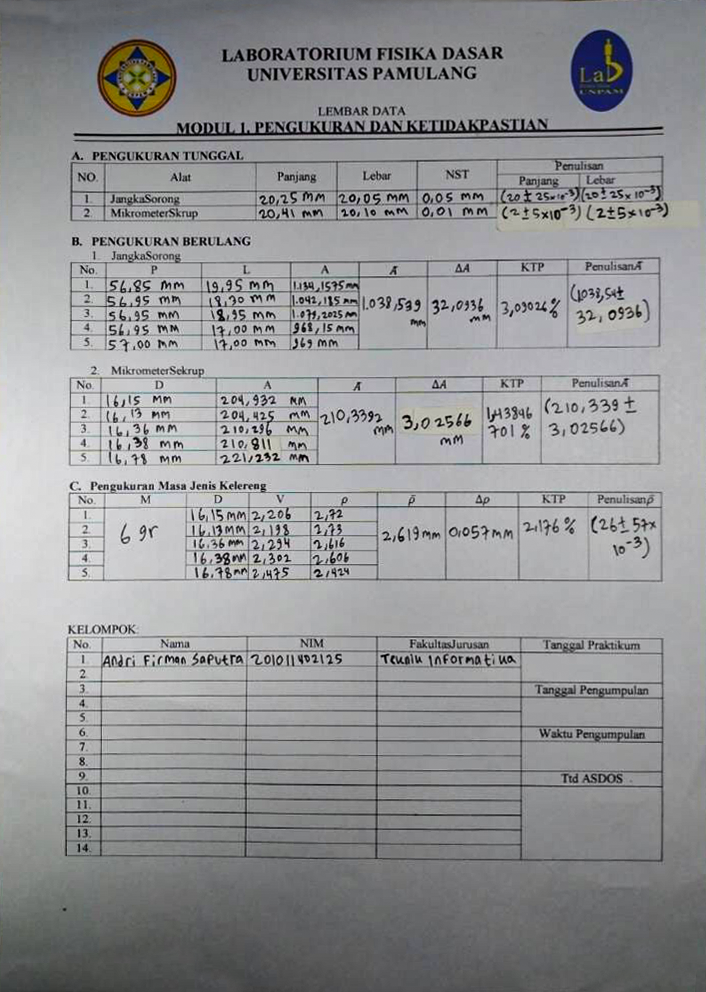 LABORATORIUM FISIKA DASAR
UNIVERSITAS PAMULANG
Lab
UNPAM
LEMBAR DATA
MODUL 1. PENGUKURAN DAN KETIDAKPASTIAN
A. PENGUKURAN TUNGGAL
NO. Alat Panjang Lebar NST Penulisan
Panjang Lebar
1. JangkaSorong 20,25 mm 20,05 mm 0,05 mm (20 ± 25x10⁻³) (20 ± 25x10⁻³)
2. MikrometerSkrup 20,41 mm 20,10 mm 0,01 mm (2±5x10⁻³) (2±5x10⁻³)
B. PENGUKURAN BERULANG
1. JangkaSorong
No. P L A A̅ ΔA KTP PenulisanA̅
1. 56,85 mm 19,95 mm 1.134,1575 mm
2. 56,95 mm 18,30 mm 1.042,185 mm 1.038,539 mm 32,0936 mm 3,09026% (1038,54± 32,0936)
3. 56,95 mm 18,95 mm 1.079,2025 mm
4. 56,95 mm 17,00 mm 968,15 mm
5. 57,00 mm 17,00 mm 969 mm
2. MikrometerSekrup
No. D A A̅ ΔA KTP PenulisanA̅
1. 16,15 mm 204,932 mm
2. 16,13 mm 204,425 mm 210,3392 mm 3,02566 mm 1,43846701 % (210,339 ± 3,02566)
3. 16,36 mm 210,296 mm
4. 16,38 mm 210,811 mm
5. 16,78 mm 221,232 mm
C. Pengukuran Masa Jenis Kelereng
No. M D V ρ ρ̅ Δρ KTP Penulisanρ̅
1. 16,15mm 2,206 2,72
2. 6 gr 16,13mm 2,198 2,73 2,619mm 0,057mm 2,176 % (26± 57x 10⁻³)
3. 16,36mm 2,294 2,616
4. 16,38mm 2,302 2,606
5. 16,78mm 2,475 2,424
KELOMPOK:
No. Nama NIM FakultasJurusan Tanggal Praktikum
1. Andri Firman Saputra 201011402125 Teknik Informatika
2.
3. Tanggal Pengumpulan
4.
5.
6. Waktu Pengumpulan
7.
8.
9. Ttd ASDOS
10.
11.
12.
13.
14.